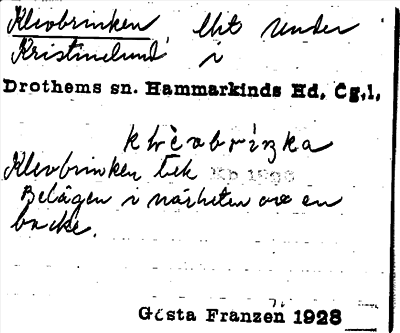 Klevbrinken, lht under
Kristinelund i
Drothems sn. Hammarkinds Hd, Ög.l.
Klevbrinken Ek
Belägen i närheten av en
backe.
Gösta Franzen 1928